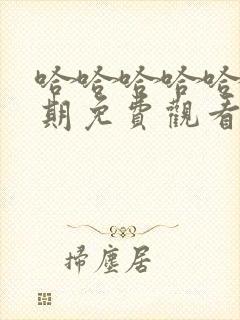 哈哈哈哈哈
期免費觀看
掃塵居